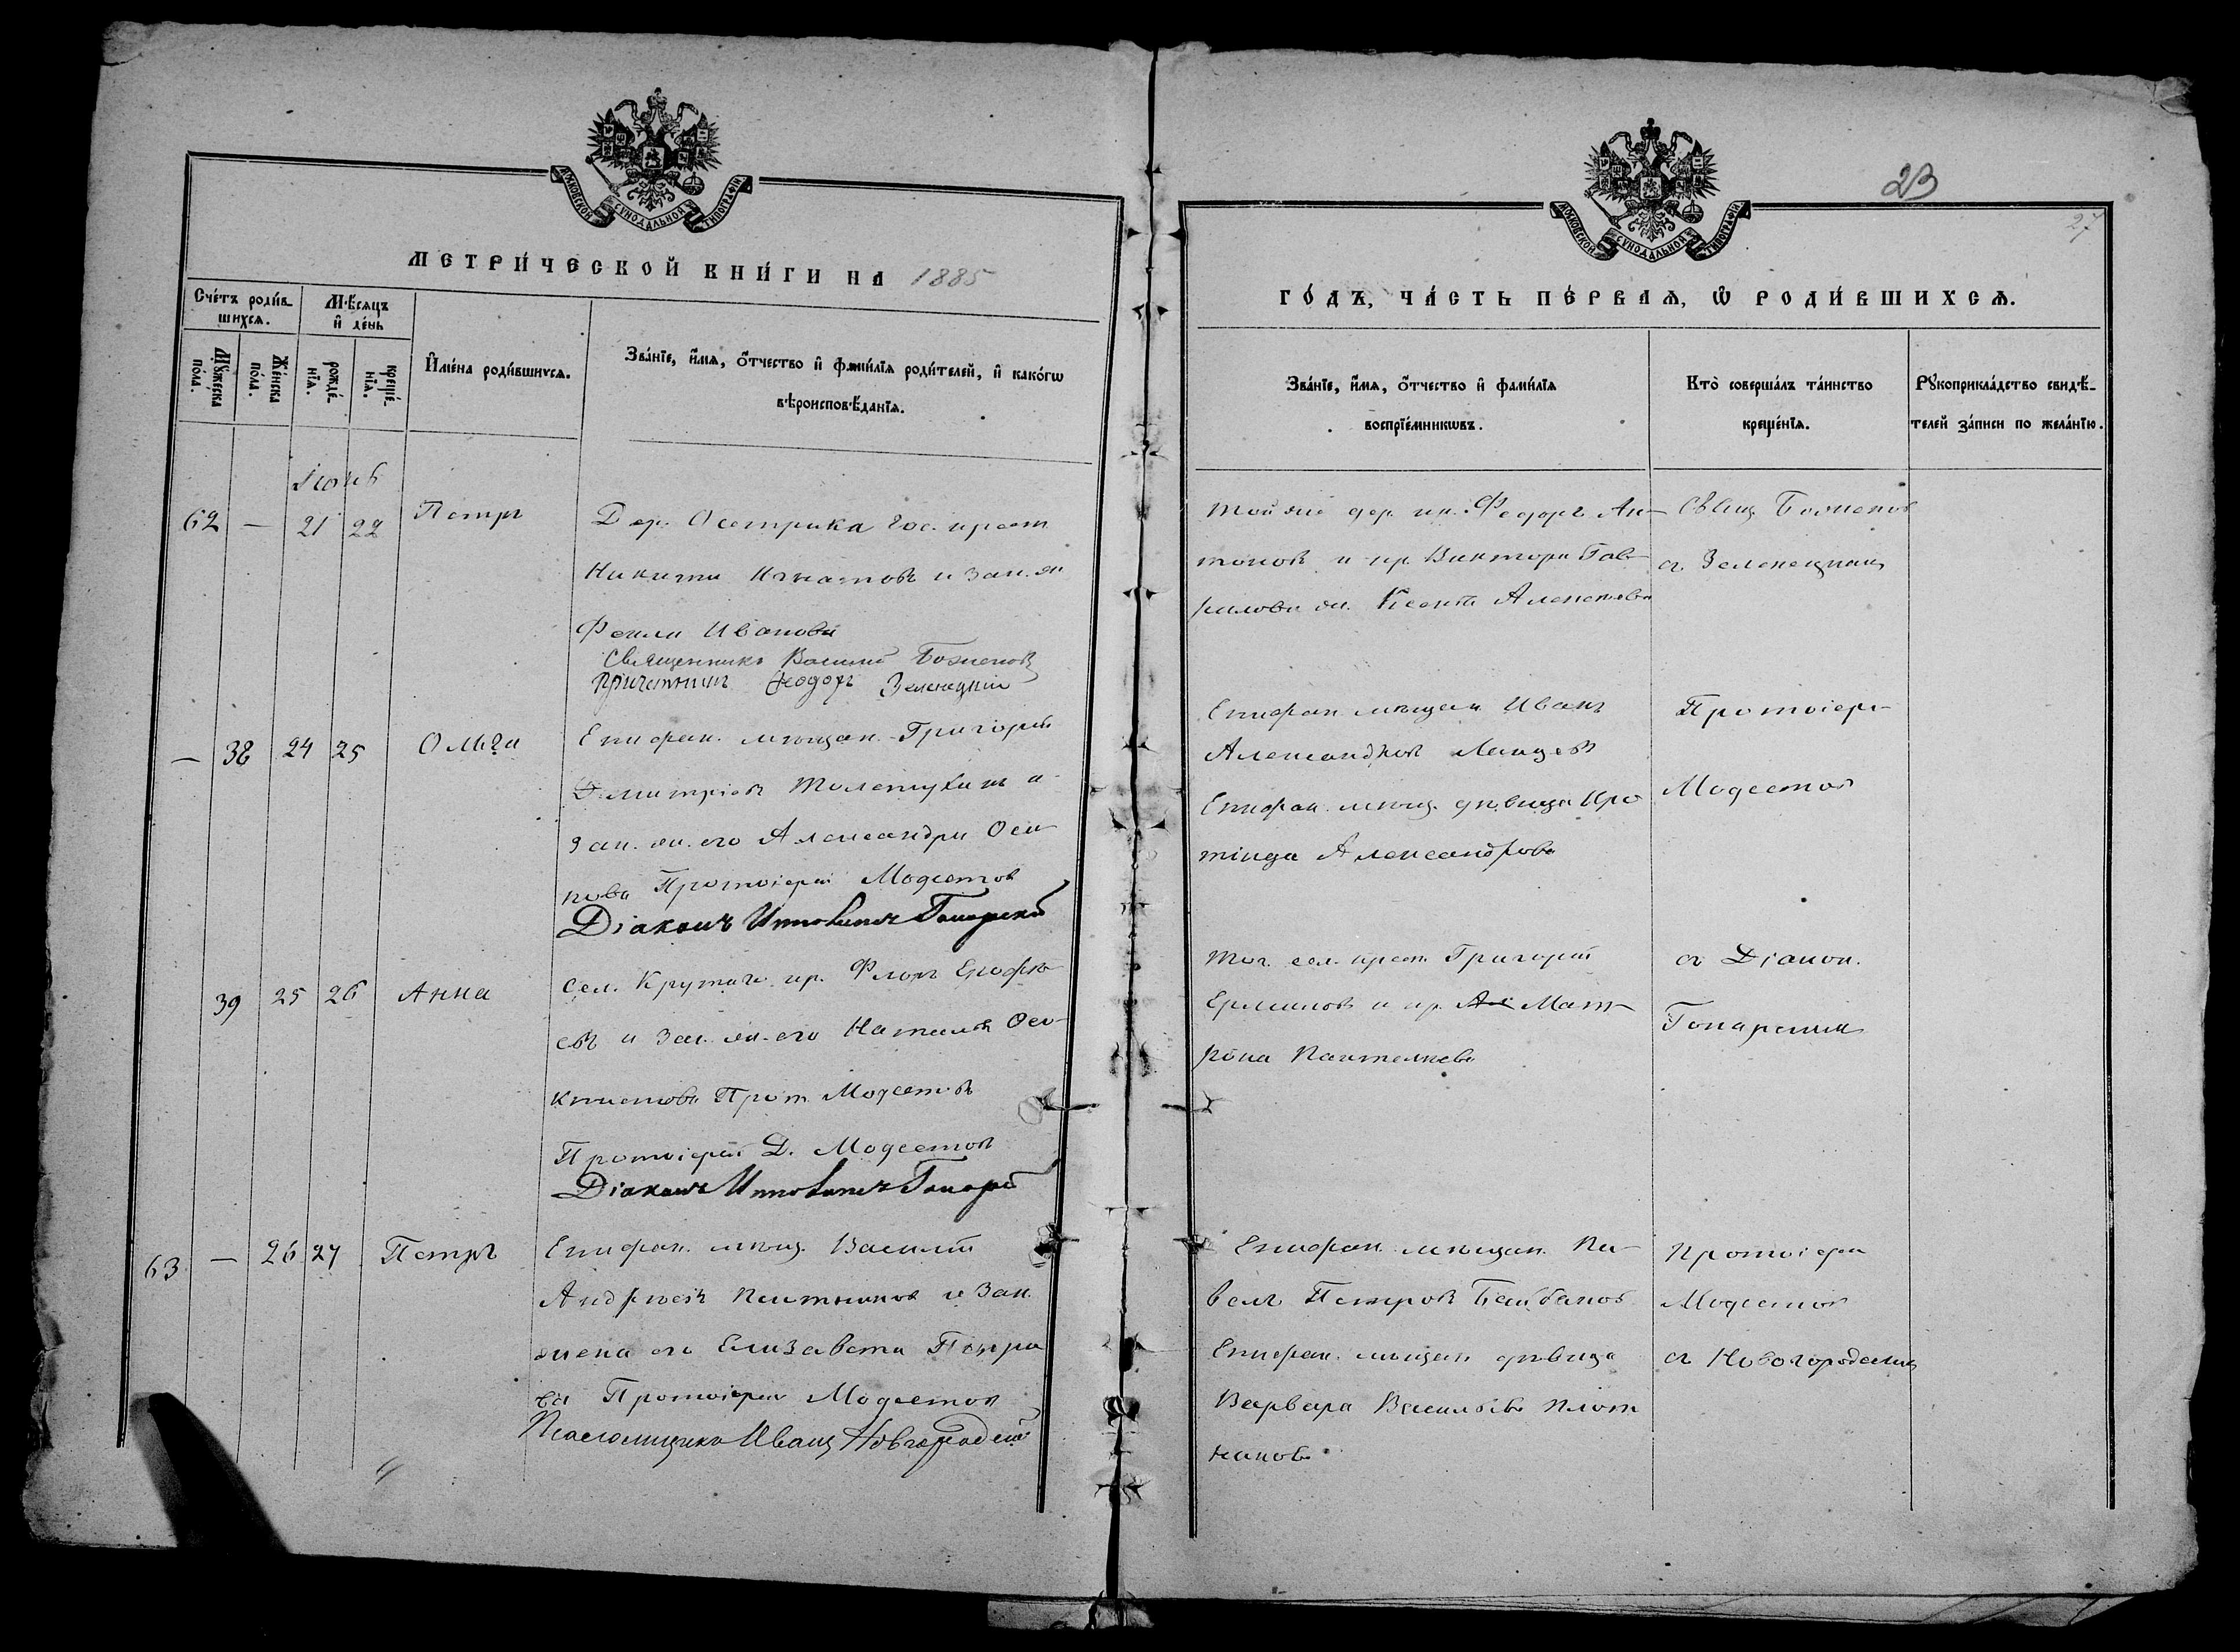 МОСКОВСКОЙ СѴНОДАЛЬНОЙ ТИПОГРАФІИ
МЕТРИ́ЧЕСКОЙ КНИ́ГИ НА 1885
Сче́тъ роди́в-
шихсѧ.
Мѣ́сѧцъ
и҆ де́нь
Мꙋ́жеска
по́ла.
Же́нска
по́ла.
рожде́-
нїѧ.
креще́-
нїѧ.
И҆мена̀ роди́вшихсѧ.
Зва́нїе, и҆́мѧ, ѻ҆́тчество и҆ фами́лїѧ роди́телей, и҆ како́гѡ
вѣроисповѣ́данїѧ.
Іюнь
62 — 21 22 Петръ
Дер. Осетрика Гос. крест.
Никита Игнатовъ и зак. ж.
Фекла Иванова
Священникъ Василій Боженовъ
Причетникъ Ѳеодоръ Зеленецкій
— 38 24 25 Ольга
Епифан. мѣщан. Григорій
Димитріевъ и
зак. ж. его Александра Оси-
пова Протоіерей Модестов
Діаконъ
39 25 26 Анна
Сел. кр. Флоръ Ерофѣ-
евъ и зак. ж. его Наталья
Прот. Модестовъ
Протоіерей Д. Модестовъ
Діаконъ
63 — 26 27 Петръ
Епифан. мѣщ. Василій
Андреевъ и зак.
жена его Елизавета Петро
ва Протоіерей Модестов
Псаломщикъ Иванъ Новгородскій
МОСКОВСКОЙ СѴНОДАЛЬНОЙ ТИПОГРАФІИ
23
27
ГО́ДЪ, ЧА́СТЬ ПЕ́РВАѦ, Ѡ҆ РОДИ́ВШИХСѦ.
Зва́нїе, и҆́мѧ, ѻ҆́тчество и҆ фами́лїѧ
воспрїе́мникѡвъ.
Кто̀ соверша́лъ та́инство
креще́нїѧ.
Рꙋкоприкла́дство свидѣ́-
телей за́писи по жела́нїю.
Той же дер. кр. Федоръ Ан-
тоновъ и кр. Виктора Гав-
рилова ж. Алексѣева
Свящ. Боженовъ
съ Зеленецким
Епифан. мѣщан. Иванъ
Александров
Епифан. мѣщ. дѣвица
Александрова
Протоіерей
Модестов
Тог. сел. крест. Григорій
Ермиловъ и кр. Мат-
рона Пантелеева
съ Діакон.
Епифан. мѣщан. Па-
велъ Петровъ
Епифан. мѣщан. дѣвица
Варвара Васильева Плот
никова
Протоіерей
Модестовъ
съ Новогородским